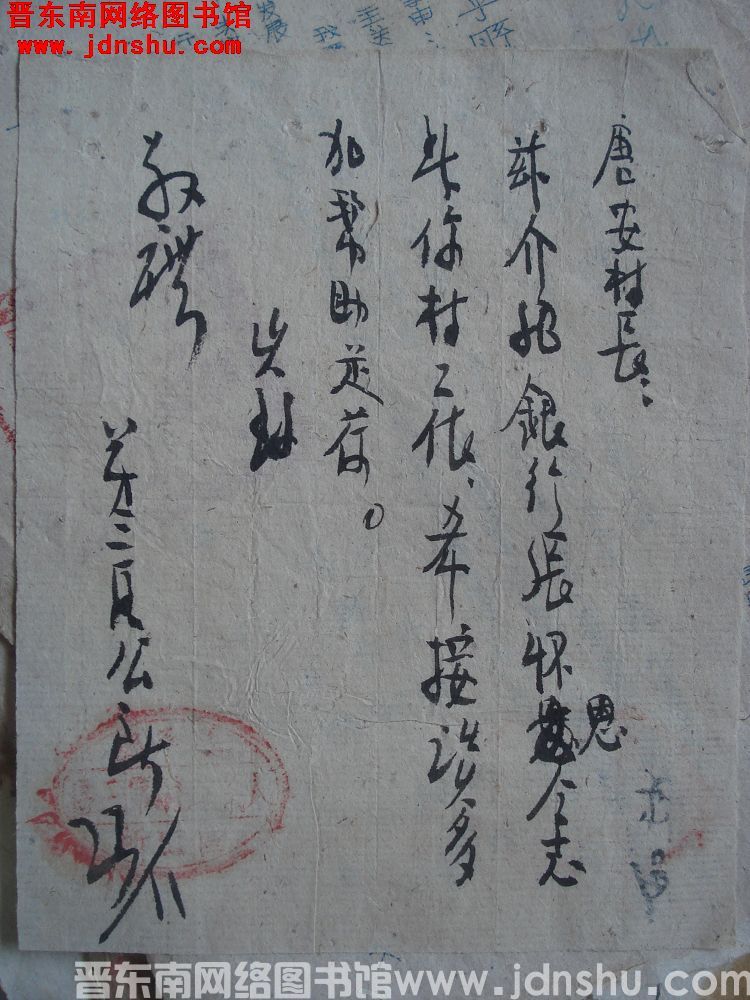 晋东南网络图书馆
www.jdnshu.com
唐安村长:
兹介绍銀行張怀恩仝志
来你村工作、希接洽多
加幫助是荷。
此致
敬礼
第二區公所
晋东南网络图书馆www.jdnshu.com